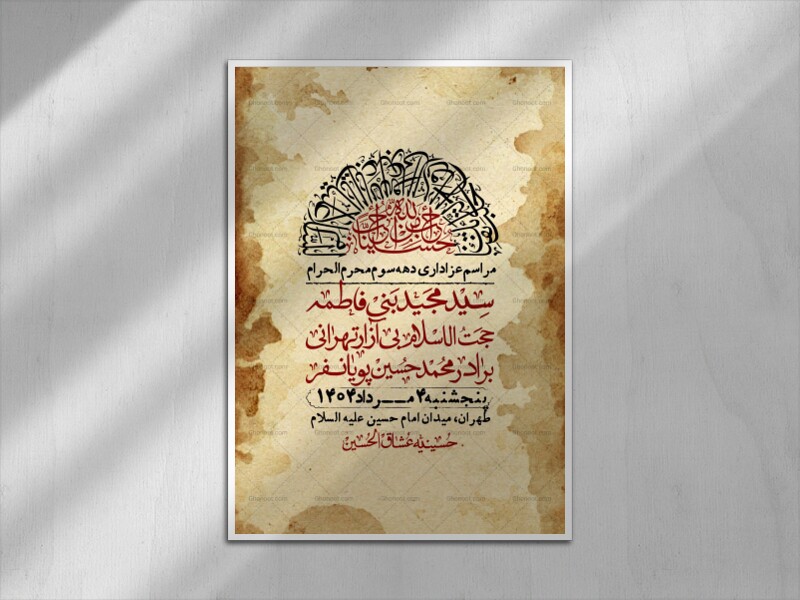 احب الله من احب حسینا
مراسم عزاداری دهه سوم محرم الحرام
سید مجید بنی فاطمه
حجت الاسلام بی آزار تهرانی
برادر محمد حسین پویانفر
پنجشنبه ۴ مرداد ۱۴۰۴
طهران، میدان امام حسین علیه السلام
حسینیه عشاق الحسین
Ghonoot.com